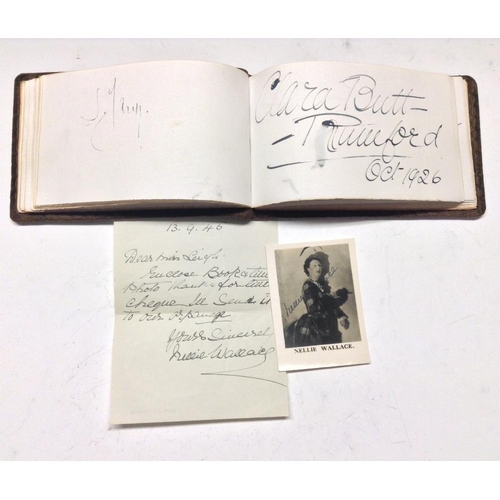 Clara Butt-
-Rumford
Oct 1926
13.9.46
Dear Miss Leigh.
Enclose Book &
Photo Thanks for
cheque Ill send it
to our
Yours Sincerely
Nellie Wallace
NELLIE WALLACE.